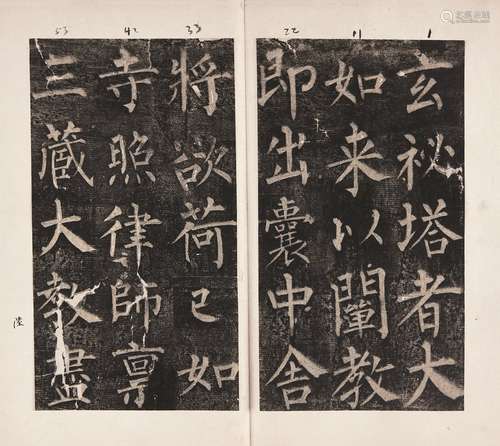 玄祕塔者大
如来以闡教
即出囊中舍
將欲荷已如
寺照律師禀
三藏大教盡
1
11
22
33
42
53
陸